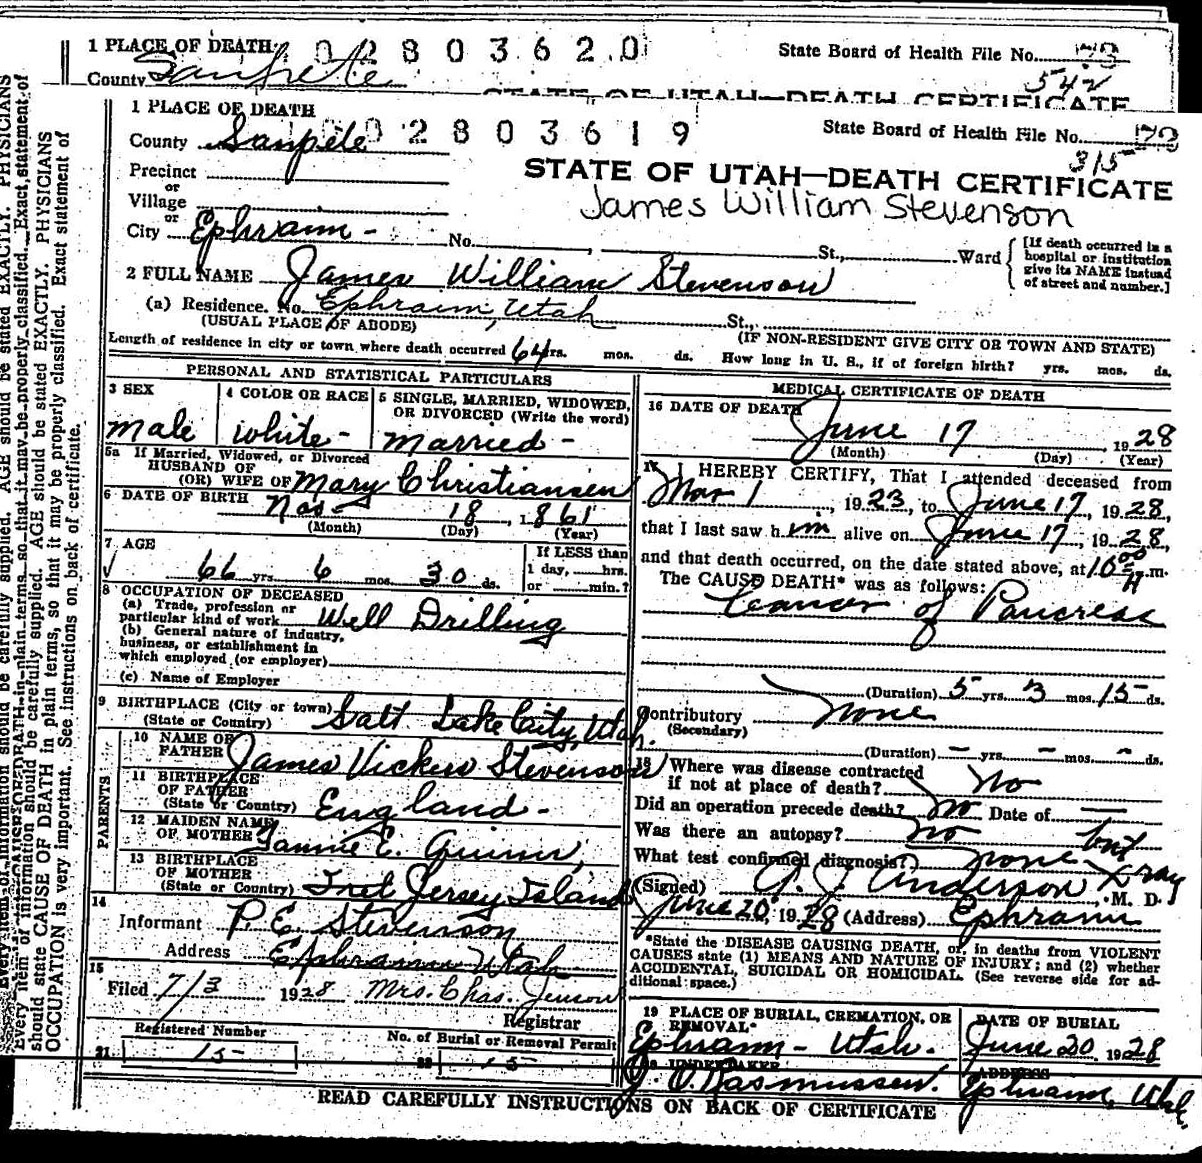 1 PLACE OF DEATH
0 2 8 0 3 6 2 0
State Board of Health File No. 73
County Sanpete
542
STATE OF UTAH—DEATH CERTIFICATE
1 PLACE OF DEATH
0 2 8 0 3 6 1 9
State Board of Health File No. 73
County Sanpete
315
Precinct
STATE OF UTAH—DEATH CERTIFICATE
or
Village
James William Stevenson
or
City Ephraim - No. , St., Ward
[If death occurred in a hospital or institution give its NAME instead of street and number.]
2 FULL NAME James William Stevenson
(a) Residence. No. Ephraim, Utah St.,
(USUAL PLACE OF ABODE) (IF NON-RESIDENT GIVE CITY OR TOWN AND STATE)
Length of residence in city or town where death occurred 64 yrs. mos. ds. How long in U. S., if of foreign birth? yrs. mos. ds.
PERSONAL AND STATISTICAL PARTICULARS
3 SEX
male
4 COLOR OR RACE
white -
5 SINGLE, MARRIED, WIDOWED, OR DIVORCED (Write the word)
married -
5a If Married, Widowed, or Divorced
HUSBAND OF
(OR) WIFE OF Mary Christiansen
6 DATE OF BIRTH Nov 18, 1861
(Month) (Day) (Year)
7 AGE
66 yrs. 6 mos. 30 ds.
If LESS than
1 day, hrs.
or min.?
8 OCCUPATION OF DECEASED
(a) Trade, profession or
particular kind of work Well Drilling
(b) General nature of industry,
business, or establishment in
which employed (or employer)
(c) Name of Employer
9 BIRTHPLACE (City or town)
(State or Country) Salt Lake City, Utah.
PARENTS
10 NAME OF
FATHER James Vickers Stevenson
11 BIRTHPLACE
OF FATHER
(State or Country) England -
12 MAIDEN NAME
OF MOTHER
13 BIRTHPLACE
OF MOTHER
(State or Country) Jersey Island
14
Informant P. E. Stevenson
Address Ephraim Utah
15
Filed 7/3 1928 Mrs. Chas. Jenson
Registrar
Registered Number
21. 15
No. of Burial or Removal Permit
22 15
MEDICAL CERTIFICATE OF DEATH
16 DATE OF DEATH
June 17, 1928
(Month) (Day) (Year)
17 I HEREBY CERTIFY, That I attended deceased from
Mar 1, 1923, to June 17, 1928,
that I last saw him alive on June 17, 1928,
and that death occurred, on the date stated above, at 10 00 m.
The CAUSE DEATH* was as follows:
Cancer of Pancreas
(Duration) 5 yrs. 3 mos. 15 ds.
Contributory none
(Secondary)
(Duration) - yrs. - mos. - ds.
18 Where was disease contracted
if not at place of death? No
Did an operation precede death? No Date of —
Was there an autopsy? No
What test confirmed diagnosis? none but Xray
(Signed) Anderson, M. D.
June 20 1928 (Address) Ephraim
*State the DISEASE CAUSING DEATH, or, in deaths from VIOLENT
CAUSES state (1) MEANS AND NATURE OF INJURY; and (2) whether
ACCIDENTAL, SUICIDAL OR HOMICIDAL. (See reverse side for ad-
ditional space.)
19 PLACE OF BURIAL, CREMATION, OR
REMOVAL*
Ephraim - Utah.
DATE OF BURIAL
June 20 1928
UNDERTAKER
Rasmussen.
ADDRESS
Ephraim, Utah.
READ CAREFULLY INSTRUCTIONS ON BACK OF CERTIFICATE
Every item of information should be carefully supplied. AGE should be stated EXACTLY. PHYSICIANS
should state CAUSE OF DEATH in plain terms, so that it may be properly classified. Exact statement of
OCCUPATION is very important. See instructions on back of certificate.